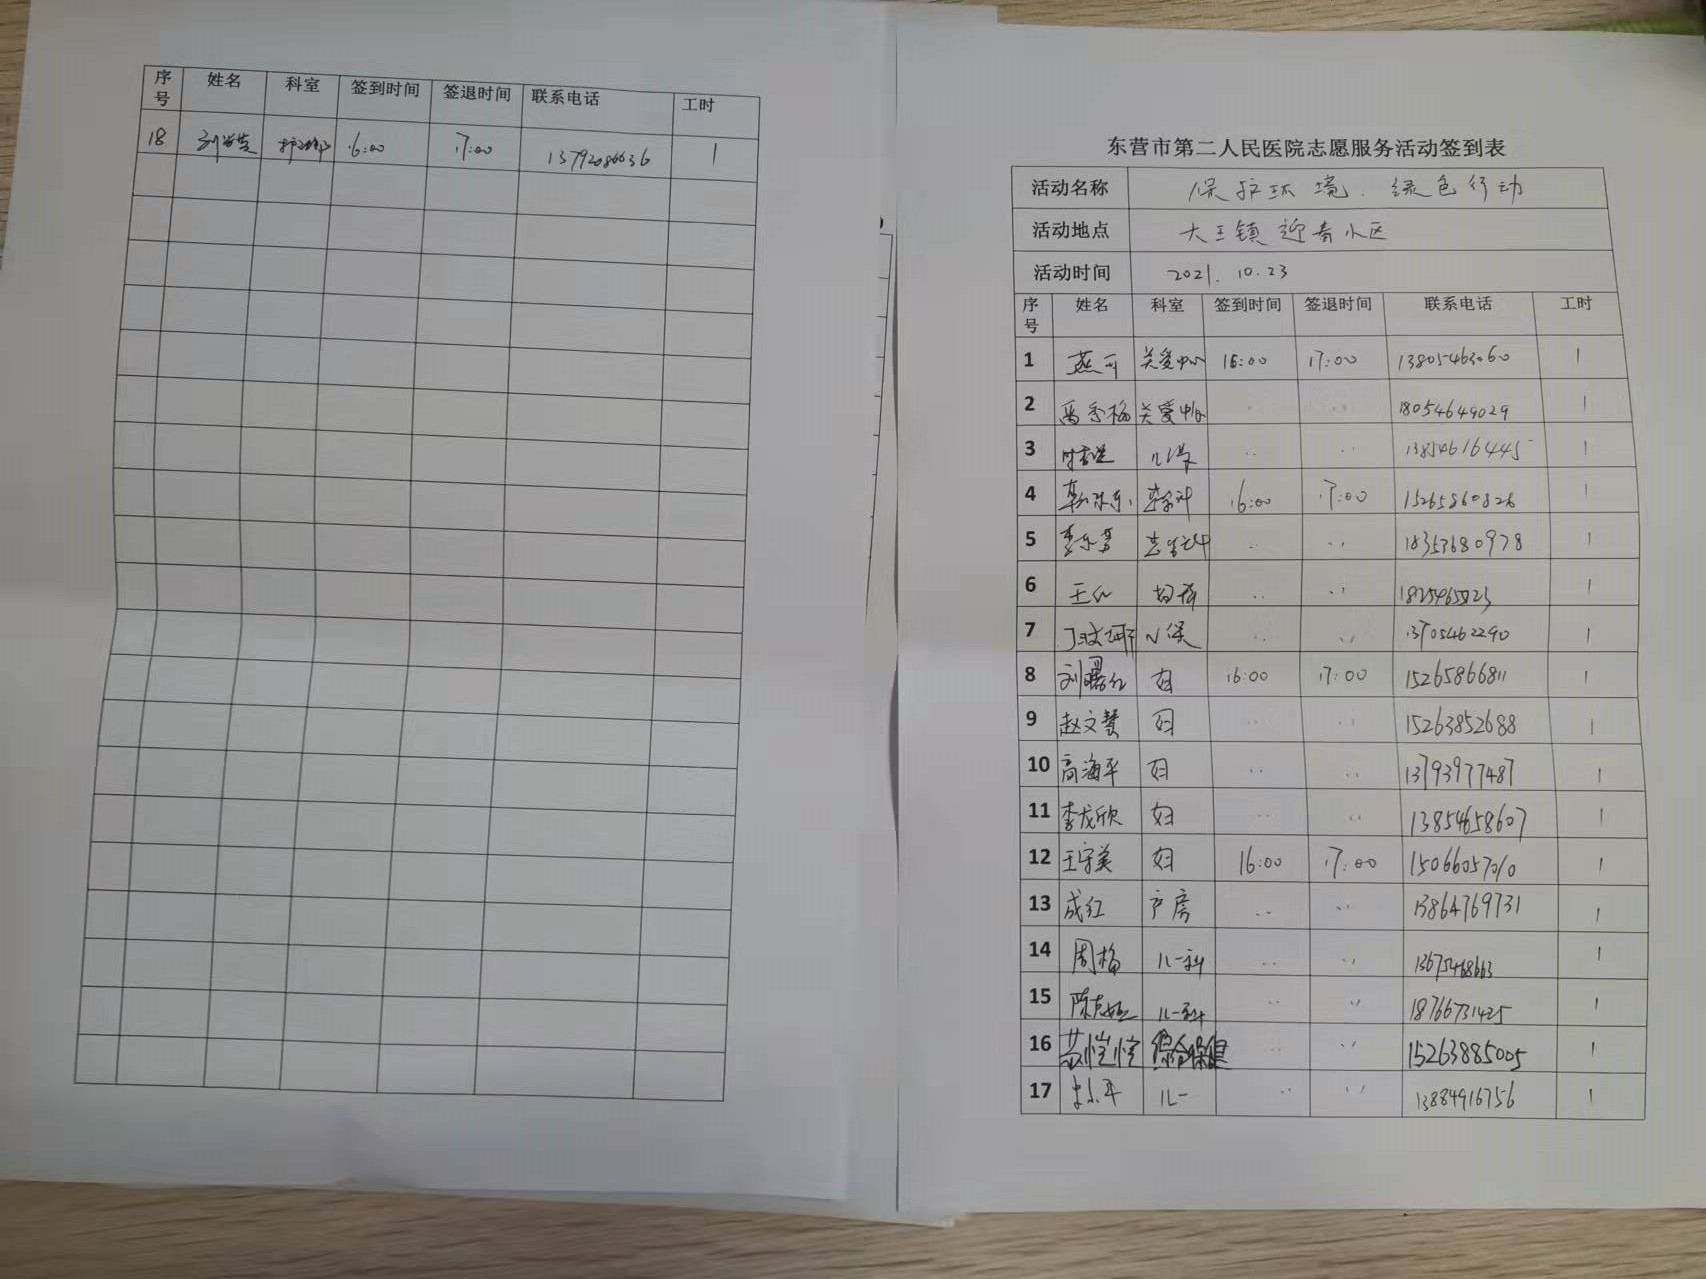 序号 姓名 科室 签到时间 签退时间 联系电话 工时
18 16:00 17:00 13792086636 1
东营市第二人民医院志愿服务活动签到表
活动名称 保护环境.绿色行动
活动地点 大王镇迎春小区
活动时间 2021.10.23
序号 姓名 科室 签到时间 签退时间 联系电话 工时
1 燕 关爱中心 16:00 17:00 13805463060 1
2 秀梅 关爱中心 18054649029 1
3 儿保 13854616445 1
4 16:00 17:00 15265860826 1
5 18353680978 1
6 王 1
7 丁 儿保 13705462290 1
8 刘 红 妇 16:00 17:00 15265866811 1
9 赵文 妇 15263852688 1
10 高海平 妇 13793977487 1
11 李龙欣 妇 13854658607 1
12 王守美 妇 16:00 17:00 15066057010 1
13 成红 产房 13864769731 1
14 周梅 儿一科 13675468663 1
15 陈 儿一科 18766731425 1
16 苏恺恺 综合保健 15263885005 1
17 平 儿一 13884916756 1